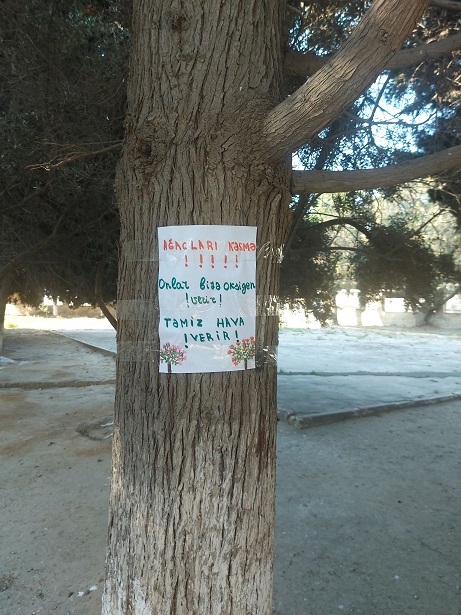 AĞACLARI KƏSMƏ
! ! ! ! !
Onlar bizə oksigen
! verir !
TƏMİZ HAVA
! VERİR !